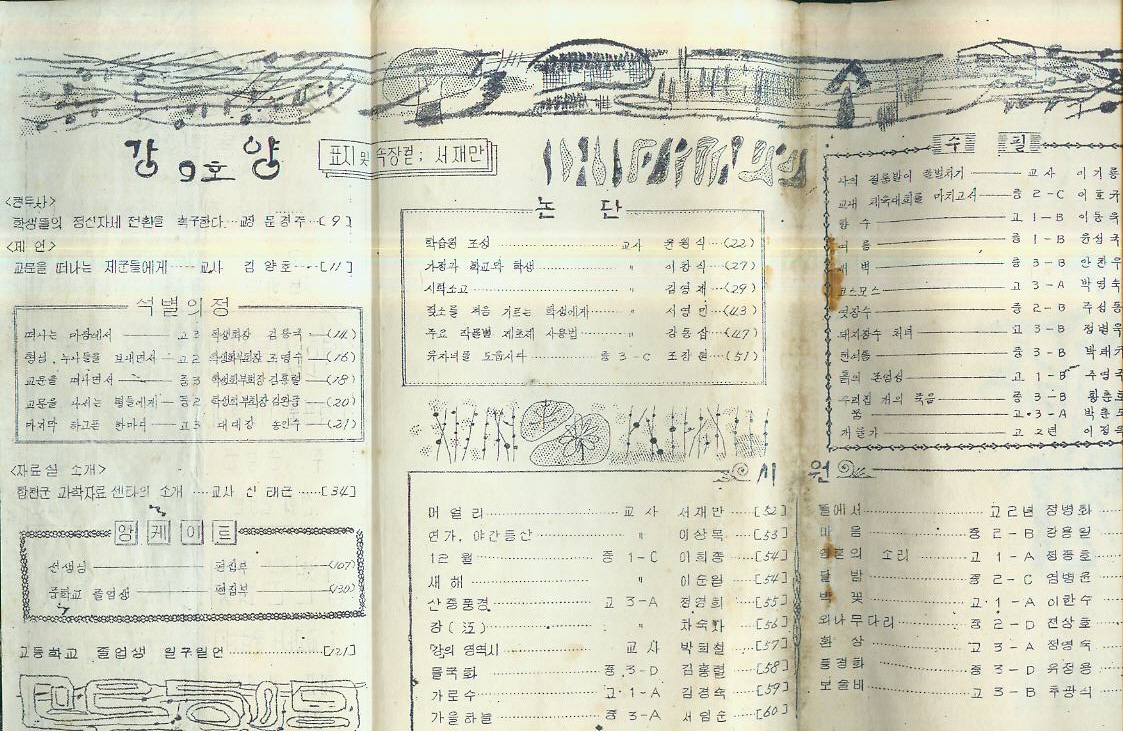 강 9호 양
표지 및 속장컽; 서재만
<권두사>
학생들의 정신자세 전환을 촉구한다 교장 문경주 [9]
<제 언>
교문을 떠나는 제군들에게 교사 김양호 [11]
석별의정
떠나는 마당에서 고3 학생회장 (14)
형님, 누나들을 보내면서 고2 학생회부회장 조명수 (16)
교문을 떠나면서 중3 학생회부회장 김홍렬 (18)
교문을 나서는 형들에게 중2 학생회부회장 (20)
마지막 하고픈 한마디 고3 대대장 (21)
<자료실 소개>
합천군 과학자료 센타의 소개 교사 신태근 [34]
앙케이트
선생님 편집부 (107)
중학교 졸업생 편집부 (130)
고등학교 졸업생 일구일언 [121]
논 단
학습원 조성 교사 윤원식 (22)
가정과 학교와 학생 〃 이창식 (27)
시학소고 〃 김영재 (29)
젖소를 처음 기르는 학생에게 서영민 (43)
주요 작물별 제초제 사용법 〃 강동삽 (47)
유자녀를 도웁시다 중 3-C 조강원 (51)
시 원
머얼리 교사 서재만 [52]
연가, 야간등산 이상목 [53]
12월 중 1-C 이희종 [54]
새해 〃 이순원 [54]
산중풍경 고 3-A 정영희 [55]
강(江) 〃 차숙자 [56]
교사 박희철 [57]
들국화 중 3-D 김홍렬 [58]
가로수 고 1-A 김경숙 [59]
가을하늘 중 3-A 서임순 [60]
수 필
교사 이기룡
교내 체육대회를 마치고서 중 2-C 이호규
향수 고 1-B 이동욱
여름 중 1-B 윤심국
새벽 중 3-B 안찬우
코스모스 고 3-A 박영숙
엿장수 중 2-B 주심동
돼지장수 처녀 고 3-B 정범욱
한여름 중 3-B
흙의 존엄성 고 1-B
우리집 개의 죽음 중 3-B 황춘호
꿈 고 3-A
겨울가 고 2년 이정숙
들에서 고2년 정병화
마음 중 2-B 강용일
소리 고 1-A 정종호
달밤 중 2-C 엄병윤
박꽃 고 1-A 이한수
외나무다리 중 2-D 전상호
환상 고 3-A 정영숙
풍경화 중 3-D 유정용
보슬비 고 3-B 추광식